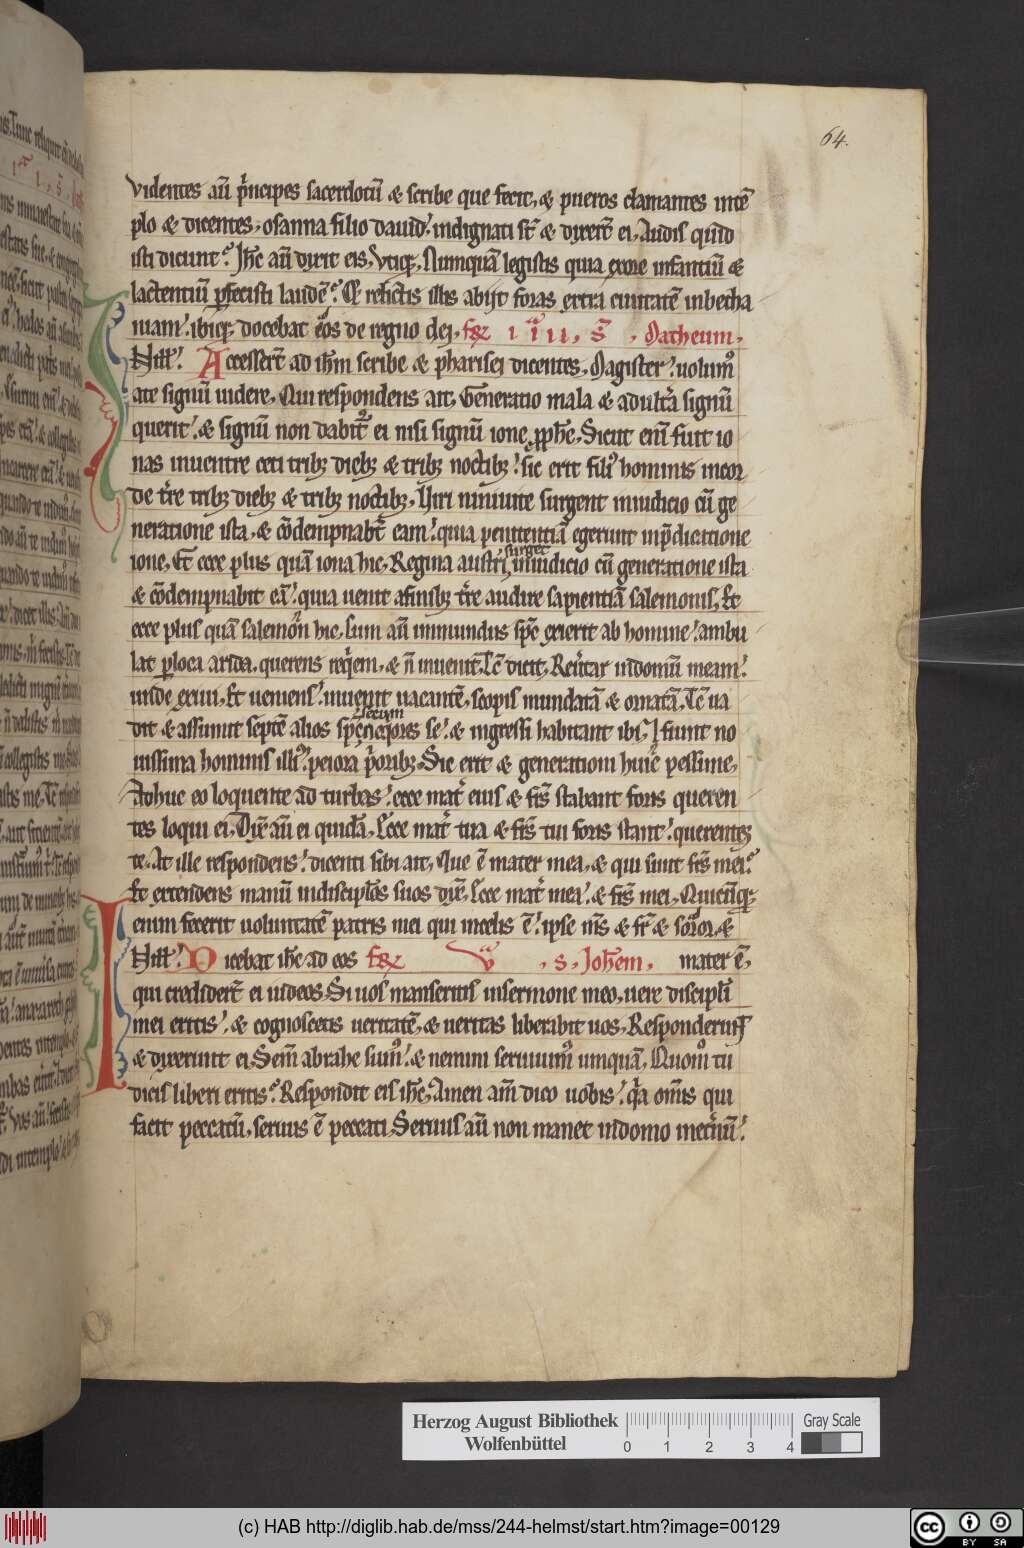 64.
videntes aū pͥncipes sacerdotū & scribe que fecit, & pueros clamantes intē
plo & dicentes, osanna filio dauid. indignati st̄ & dixert̄ ei, Audis quid
isti dicunt? Ihc̄ aū dixit eis, Vtiqꝫ, Nunquā legistis quia exore infantiū &
lactentiū ꝑfecisti laudē? Et relictis illis abijt foras extra ciuitatē inbetha
niam. ibiqꝫ docebat eos de regno dei, Matheum,
Accessert̄ ad ihm̄ scribe & pharisei dicentes, Magister! uolumꝰ
ate signū uidere, Qui respondens ait, Generatio mala & adultͣa signū
querit! & signū non dabitᷣ ei nisi signū ione ꝓph̄e, Sicut eni̅ fuit io
nas inuentre ceti tribꝫ diebꝫ & tribꝫ noctibꝫ! sic erit filiꝰ hominis incor
de tr̄e tribꝫ diebꝫ & tribꝫ noctibꝫ, Uiri niniuite surgent iniudicio cū ge
neratione ista, & cōdempnabt̄ eam! quia penitentiā egerunt inp̄dicatione
ione, Et ecce plus quā iona hic, Regina austri surget iniudicio cū generatione ista
& cōdempnabit eā! quia uenit afinibꝫ tr̄e audire sapientiā salemonis, Et
ecce plus quā salemōn hic, Cum aū inmundus spc̄ exierit ab homine! ambu
lat ꝑloca arida, querens reqͥem, & n̄ inuenit. Tc̄ dicit, Reūtar indomū meam!
unde exiui, Et ueniens! inuenit uacantē, scopis mundatā & ornatā, Tc̄ ua
dit & assumit septē alios spc̄ secum neqͥores se! & ingressi habitant ibi, & fiunt no
uissima hominis illiꝰ! peiora pͥoribꝫ, Sic erit & generationi huic pessime,
Adhuc eo loquente ad turbas! ecce mat̄ eius & frs̄ stabant foris queren
tes loqui ei, Dix̄ aū ei quidā, Ecce mat̄ tua & frs̄ tui foris stant! querentes
te. At ille respondens! dicenti sibi ait, Que ē mater mea, & qui sunt frs̄ mei?
Et extendens manū indiscipl̄os suos dix̄, Ecce mat̄ mea! & frs̄ mei, Quicūqꝫ
enim fecerit uoluntatē patris mei qui incelis ē! ipse ms̄ & fr̄ & soror &
Dicebat ihc̄ ad eos , s, Joh̄em, mater ē,
qui credidert̄ ei iudeos, Si uos manseritis insermone meo, uere discipl̄i
mei eritis! & cognoscetis ueritatē, & ueritas liberabit uos, Responderunt
& dixerunt ei, Sem̄ abrahe sumꝰ! & nemini seruiuimꝰ umquā, Quomͦ tu
dicis liberi eritis? Respondit eis ihc̄, Amen am̄ dico uobis! qͥa omīs qui
facit peccatū, seruus ē peccati, Seruus aū non manet indomo inet̄nū!
Herzog August Bibliothek
Wolfenbüttel
0 1 2 3 4
Gray Scale
(c) HAB http://diglib.hab.de/mss/244-helmst/start.htm?image=00129
cc BY SA